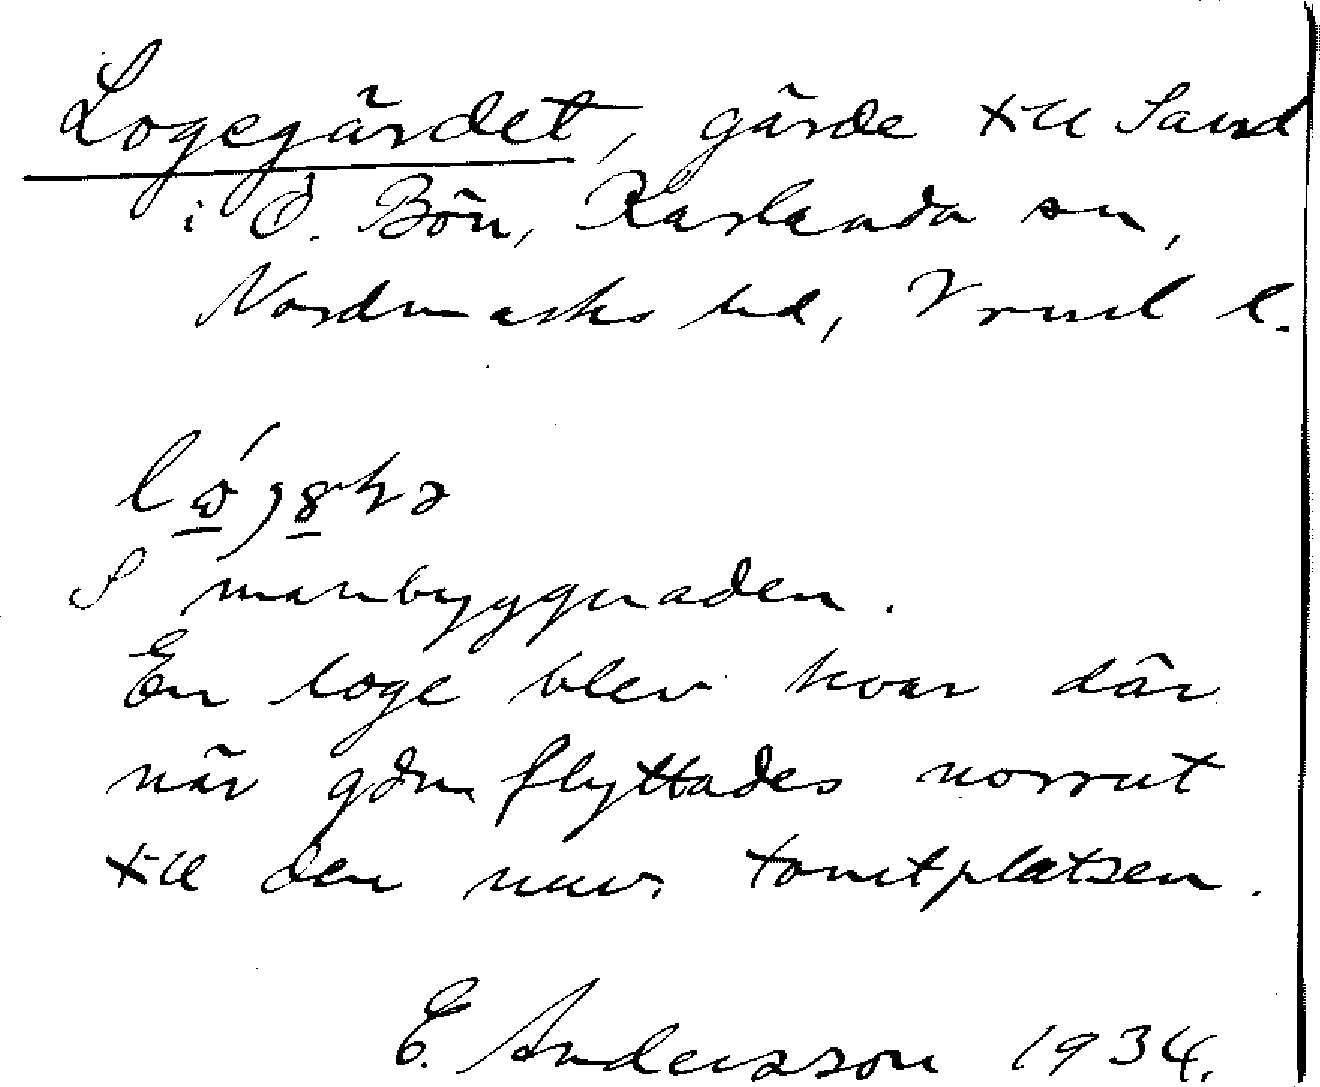 Logegärdet, gärde till Sand
i Ö. Bön, Karlanda sn,
Nordmarks hd, Vrml l.
S manbyggnaden.
En loge blev kvar där
när gdn flyttades norrut
till den nuv. tomtplatsen.
E. Andersson 1934.